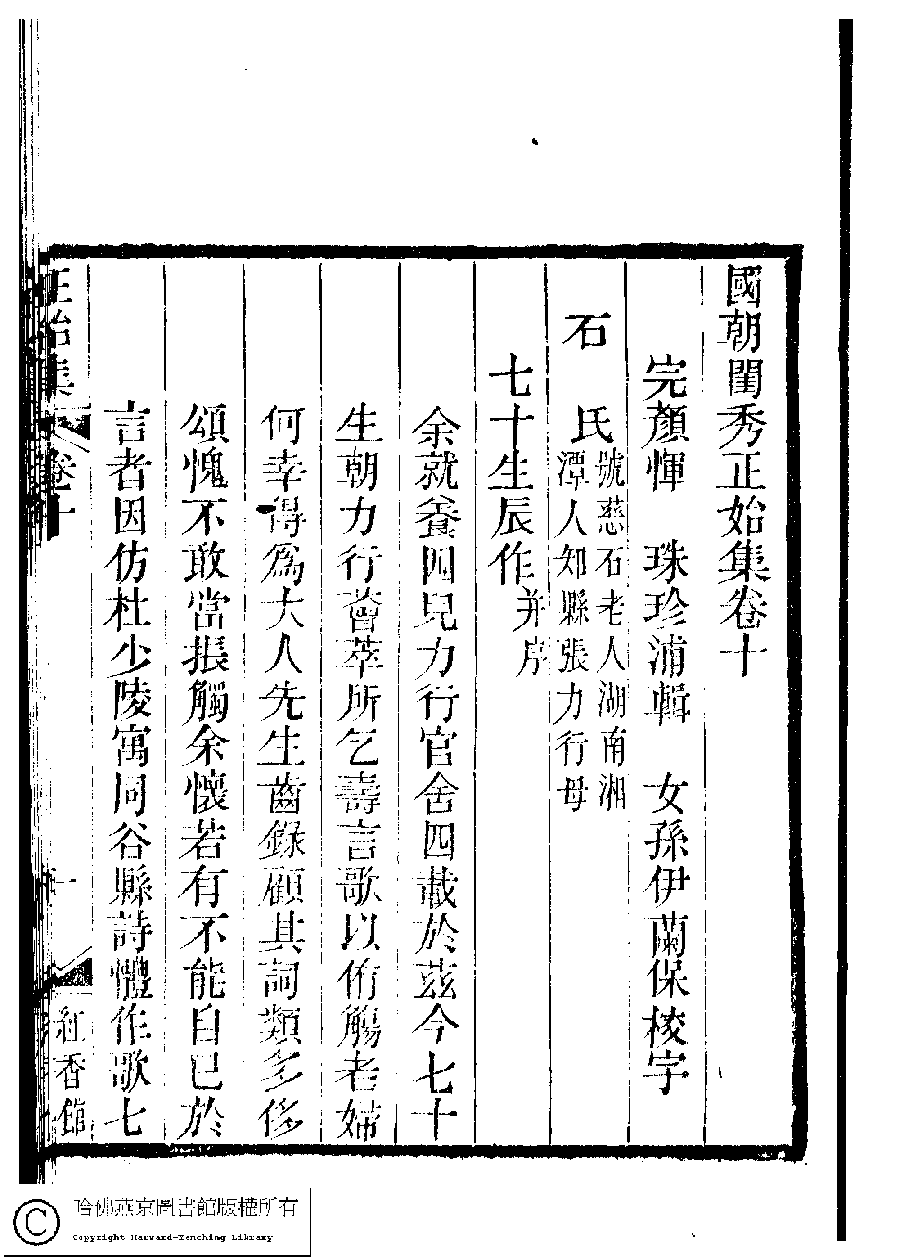 國朝閨秀正始集卷十
完顏惲 珠珍浦輯 女孫伊蘭保校字
石 氏 號慈石老人湖南湘
潭人知縣張力行母
七十生辰作 并序
余就養四兒力行官舍四載於茲今七十
生朝力行薈萃所乞壽言歌以侑觴老婦
何幸得爲大人先生齒錄顧其詞類多侈
頌愧不敢當振觸余懷若有不能自已於
言者因仿杜少陵寓同谷縣詩體作歌七
正始集 卷十 一 紅香館
哈佛燕京圖書館版權所有
Copyright Harvard-Yenching Library